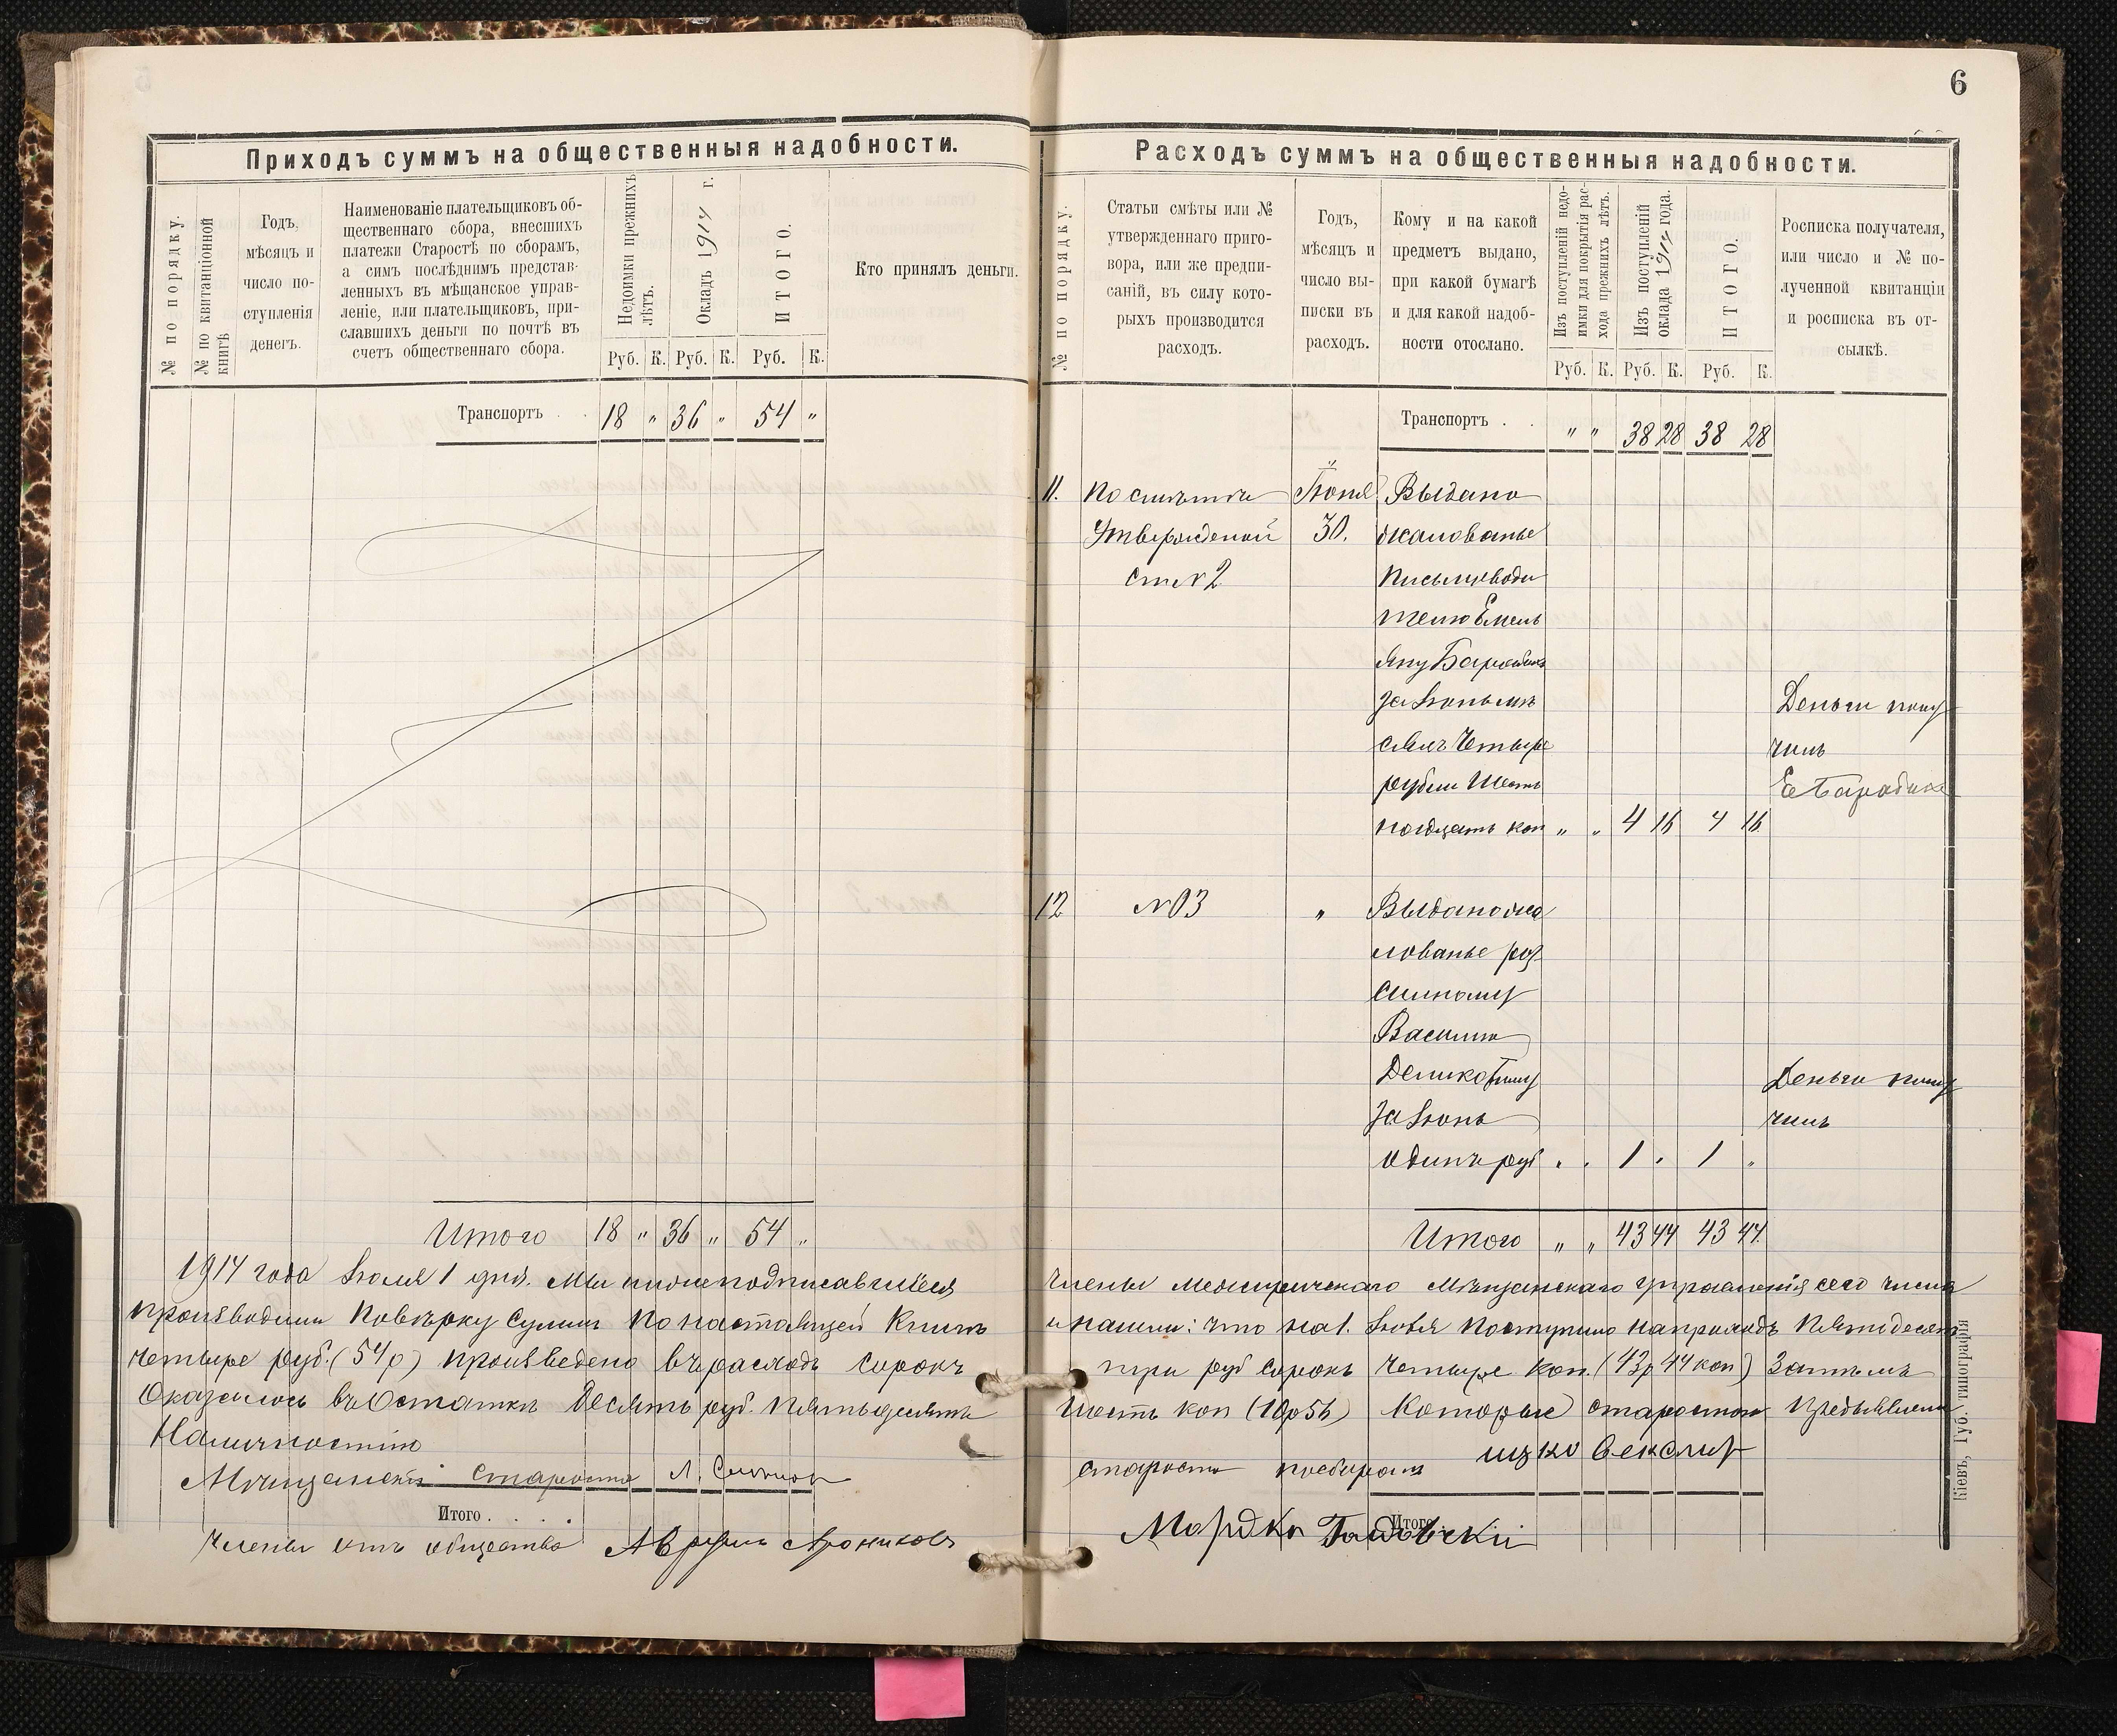 6
Приходъ суммъ на общественныя надобности.
№ по порядку.
№ по квитанціонной книгѣ
Годъ,
мѣсяцъ и
число по-
ступленія
денегъ.
Наименованіе плательщиковъ об-
щественнаго сбора, внесшихъ
платежи Старостѣ по сборамъ,
а симъ послѣднимъ представ-
ленныхъ въ мѣщанское управ-
леніе, или плательщиковъ, при-
славшихъ деньги по почтѣ въ
счетъ общественнаго сбора.
Недоимки прежнихъ
лѣтъ.
Окладъ 1914 г.
ИТОГО.
Кто принялъ деньги.
Руб. К. Руб. К. Руб. К.
Транспортъ . . 18 " 36 " 54 "
Итого 18 " 36 " 54 "
Расходъ суммъ на общественныя надобности.
№ по порядку.
Статьи смѣты или №
утвержденнаго приго-
вора, или же предпи-
саній, въ силу кото-
рыхъ производится
расходъ.
Годъ,
мѣсяцъ и
число вы-
писки въ
расходъ.
Кому и на какой
предметъ выдано,
при какой бумагѣ
и для какой надоб-
ности отослано.
Изъ поступленій недо-
имки для покрытія рас-
хода прежнихъ лѣтъ.
Изъ поступленій
оклада 1914 года.
ИТОГО.
Росписка получателя,
или число и № по-
лученной квитанціи
и росписка въ от-
сылкѣ.
Руб. К. Руб. К. Руб. К.
Транспортъ . . " " 38 28 38 28
11. По смѣтѣ Іюня Выдано
Утвержденой 30. жалованье
ст № 2 Письмоводи
телю Емель
яну
за Іюнь мѣ
сяцъ Четыре
рубли Шест
надцать коп " " 4 16 4 16
Деньги полу
чилъ
12 № 3 " Выдано жа
лованье роз
сылному
Василию
за Іюнь
Один руб " " 1 " 1 "
Деньги полу
чилъ
Итого " " 43 44 43 44
1914 года Іюля 1 дня. Мы нижеподписавшіеся члены Межиричскаго Мѣщанскаго Управленія сего числа
производили Повѣрку Суммъ По настоящей Книгѣ и нашли: что на 1. Іюля Поступило на приходъ Пятьдесятъ
четыре руб. (54 р) произведено въ расходъ сорокъ три руб Сорокъ Четыре коп. (43 р 44 коп) Затѣмъ
Оказалось въ Остаткѣ Десять руб. Пятьдесятъ Шесть коп (10 р 56) Которые старостою предъявлены
Наличностію
Мѣщанскій Староста Л.
Итого . . . .
Члены отъ общества
староста
Мордко
Итого
Кіевъ, Губ. типографія